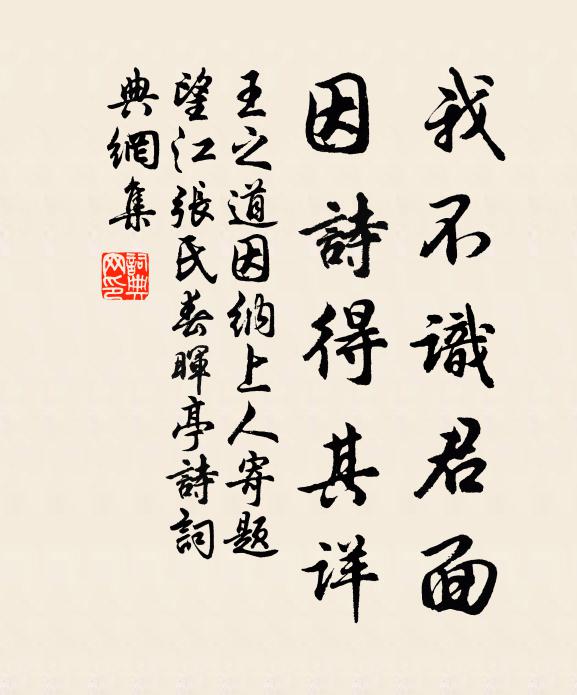 我不識君面
因詩得其详
王之道因纳上人寄题
望江張民春暉亭詩詞
典網集
詞典
网印